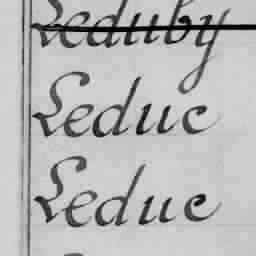 Leduby
Leduc
Leduc